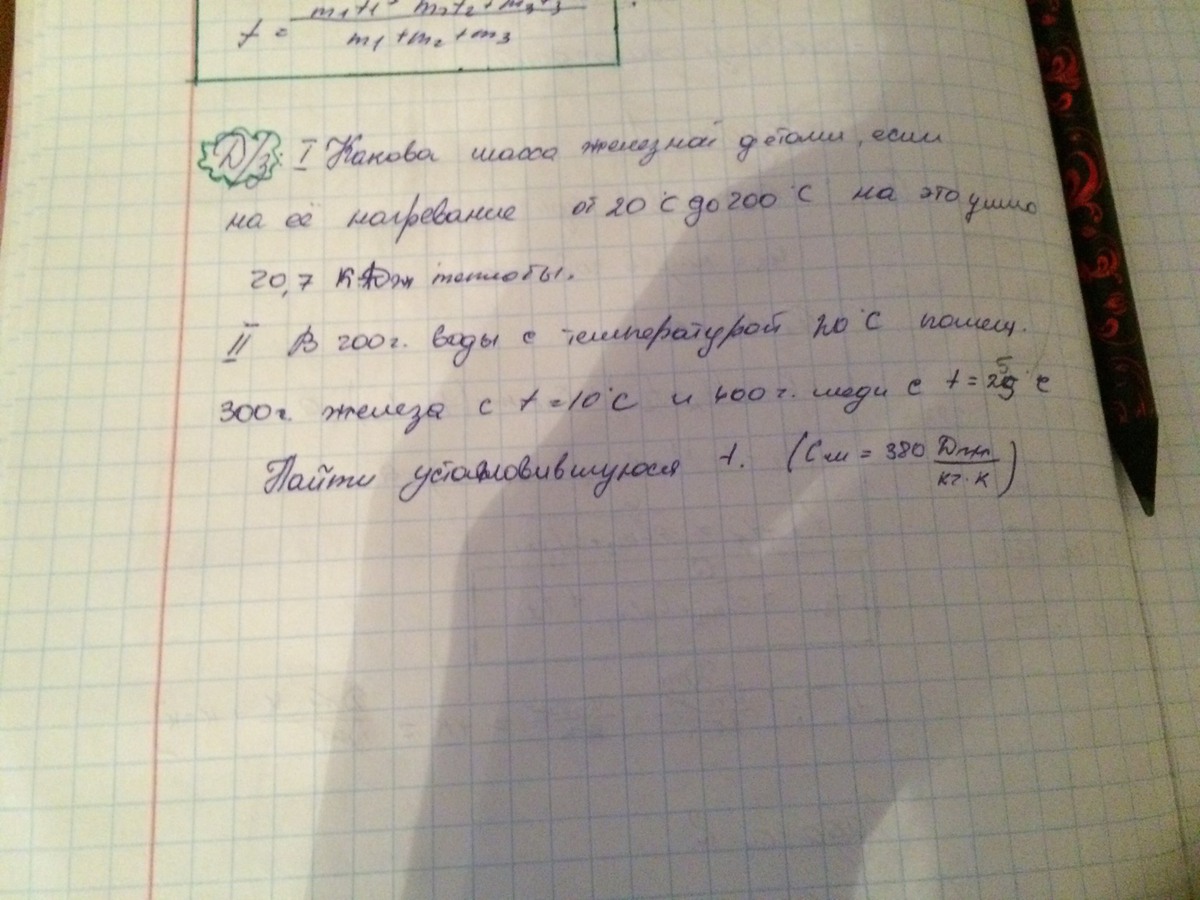 t = m₁t₁ + m₂t₂ + m₃t₃ / m₁ + m₂ + m₃
Д/з: I Какова масса железной детали, если
на её нагревание от 20°С до 200°С на это ушло
20,7 КДж теплоты.
II В 200г. воды с температурой 20°С помещ.
300г. железа с t = 10°С и 400г. меди с t = 25°С
Найти установившуюся t. (См = 380 Дж/кг·К)